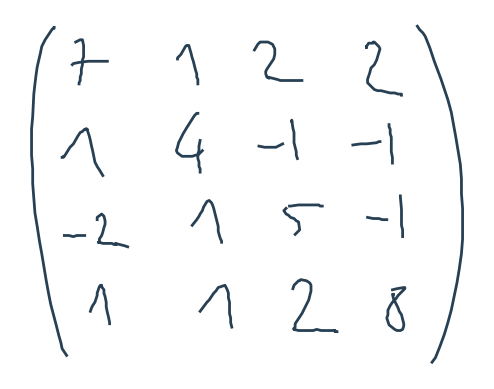 7 1 2 2
1 4 -1 -1
-2 1 5 -1
1 1 2 8